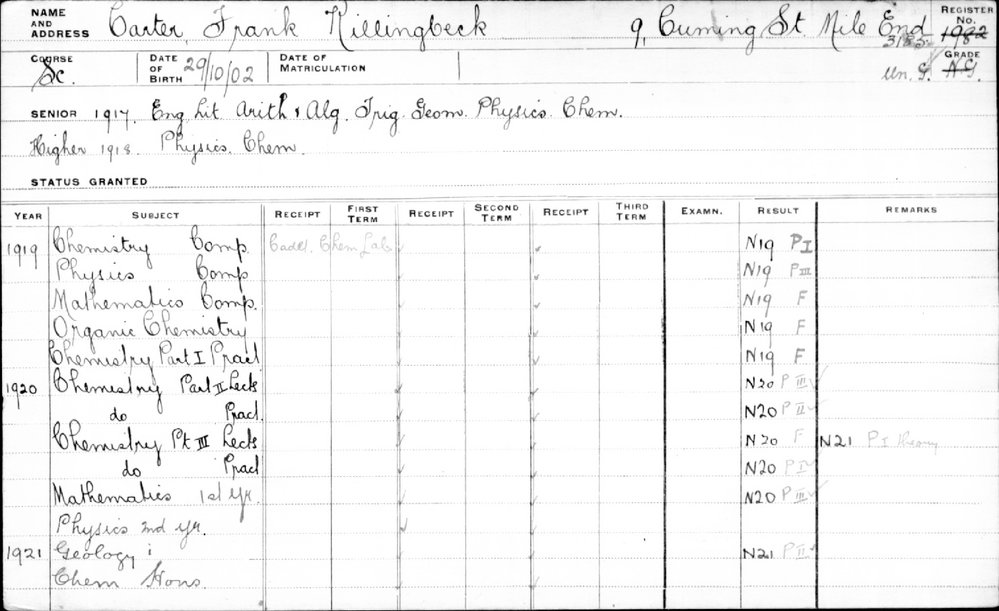 NAME AND ADDRESS Carter, Frank Killingbeck 9, Cuming St Mile End REGISTER No. 1982
COURSE Sc. DATE OF BIRTH 29/10/02 DATE OF MATRICULATION Un. G. GRADE N.G.
SENIOR 1917. Eng Lit Arith & Alg. Trig. Geom. Physics. Chem.
Higher 1918. Physics. Chem.
STATUS GRANTED
YEAR SUBJECT RECEIPT FIRST TERM RECEIPT SECOND TERM RECEIPT THIRD TERM EXAMN. RESULT REMARKS
1919 Chemistry Comp. Cadet. Chem Lab ✓ ✓ N19 P I
Physics Comp ✓ ✓ N19 P III
Mathematics Comp. ✓ ✓ N19 F
Organic Chemistry ✓ ✓ N19 F
Chemistry Part I Pract ✓ ✓ N19 F
1920 Chemistry Part II Lects ✓ ✓ N20 P III ✓
do Pract. ✓ ✓ N20 P II ✓
Chemistry Pt III Lects ✓ ✓ N20 F N21 P I theory
do Pract ✓ ✓ N20 P I ✓
Mathematics 1st Yr. ✓ ✓ N20 P III ✓
Physics 2nd Yr. ✓
1921 Geology i ✓ ✓ N21 P II ✓
Chem Hons ✓